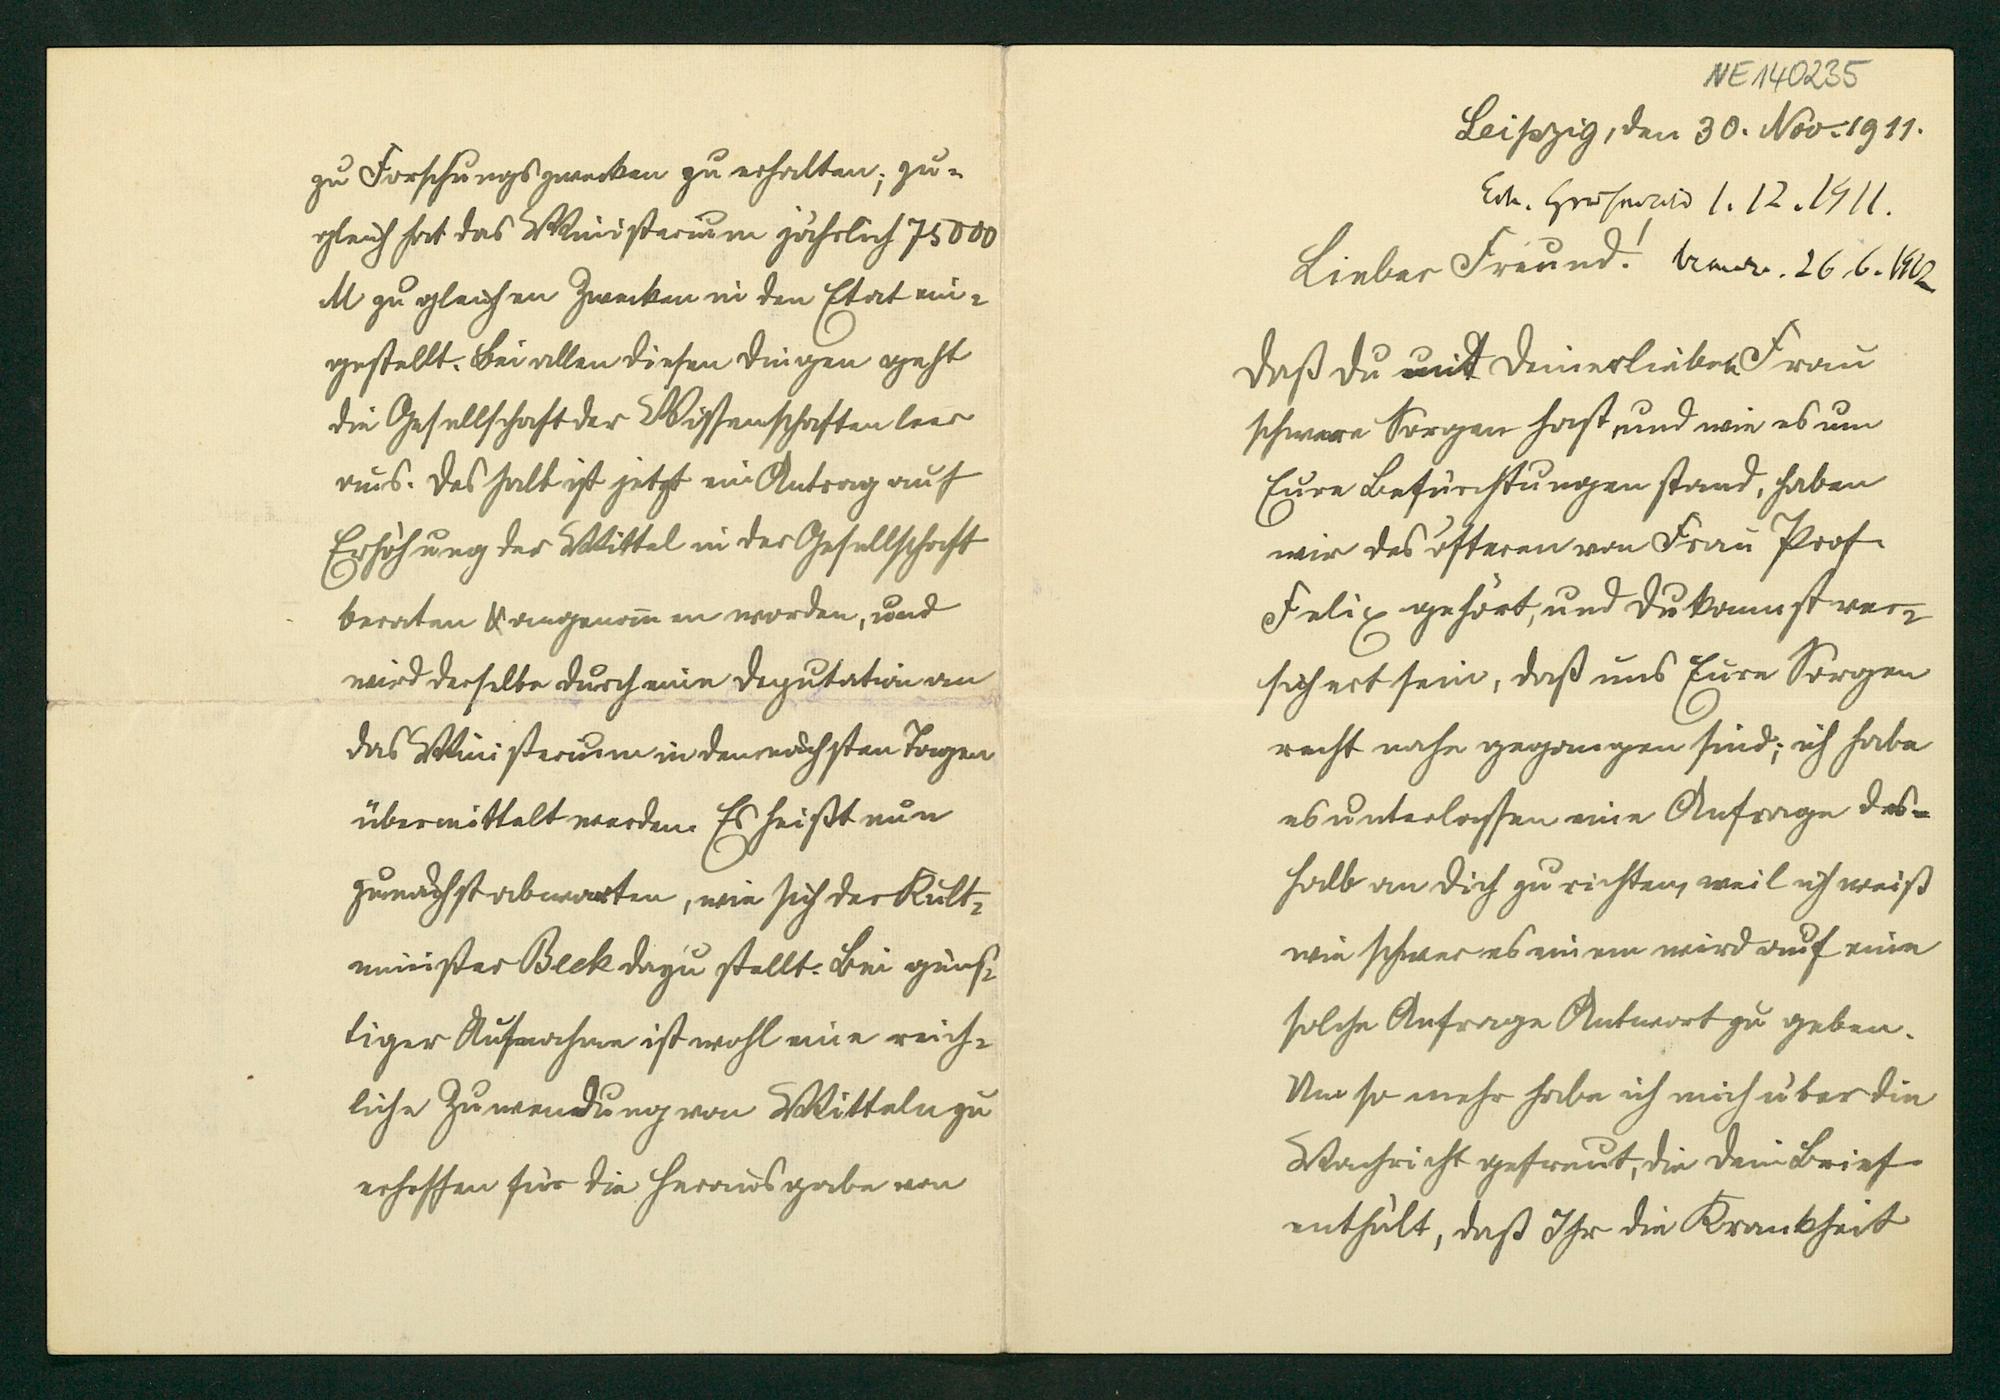 NE 140235
Leipzig, den 30. Nov. 1911.
1.12.1911.
Lieber Freund!
26.6.1912
Daß Du mit Deiner lieben Frau
schwere Sorgen hast, und wie es um
Eure Befürchtungen stand, haben
wir des öfteren von Frau Prof.
Felix gehört, und Du kannst ver-
sichert sein, daß uns Eure Sorgen
recht nahe gegangen sind; ich habe
es unterlassen eine Anfrage des-
halb an Dich zu richten, weil ich weiß
wie schwer es einem wird auf eine
solche Anfrage Antwort zu geben.
Um so mehr habe ich mich über die
Nachricht gefreut, die Dein Brief
enthält, daß Ihr die Krankheit
zu Forschungszwecken zu erhalten; zu-
gleich hat das Ministerium jährlich 75000
M zu gleichen Zwecken in den Etat ein-
gestellt. Bei allen diesen Dingen geht
die Gesellschaft der Wissenschaften leer
aus. Deshalb ist jetzt ein Antrag auf
Erhöhung der Mittel in der Gesellschaft
beraten & angenom̄en worden, und
wird derselbe durch eine Deputation an
das Ministerium in den nächsten Tagen
übermittelt werden. Es heißt nun
zunächst abwarten, wie sich der Kult-
minister Beck dazu stellt. Bei güns-
tiger Aufnahme ist wohl eine reich-
liche Zuwendung von Mitteln zu
erhoffen für die Herausgabe von